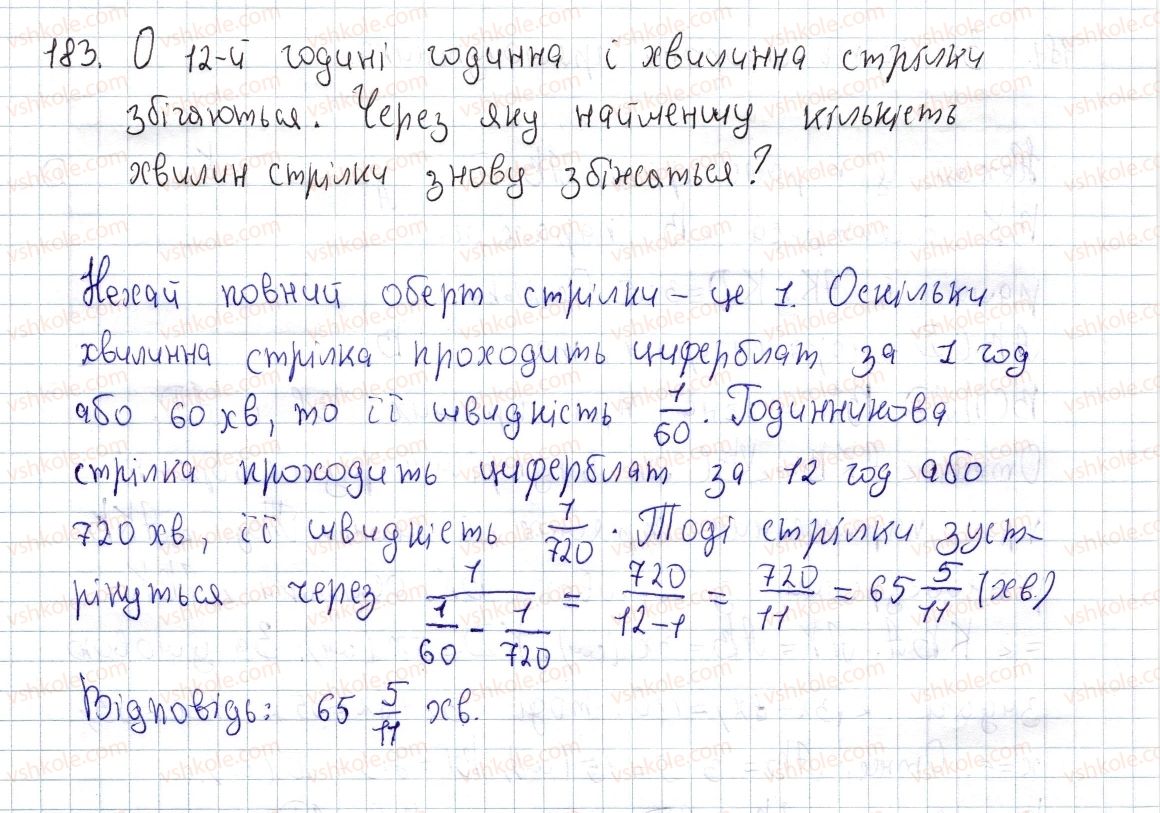 183. О 12-й годині годинна і хвилинна стрілки
збігаються. Через яку найменшу кількість
хвилин стрілки знову збіжаться?
Нехай повний оберт стрілки – це 1. Оскільки
хвилинна стрілка проходить циферблат за 1 год
або 60 хв, то її швидкість 1/60. Годинникова
стрілка проходить циферблат за 12 год або
720 хв, її швидкість 1/720. Тоді стрілки зуст-
рінуться через 1/(1/60 - 1/720) = 720/(12-1) = 720/11 = 65 5/11 (хв)
Відповідь: 65 5/11 хв.